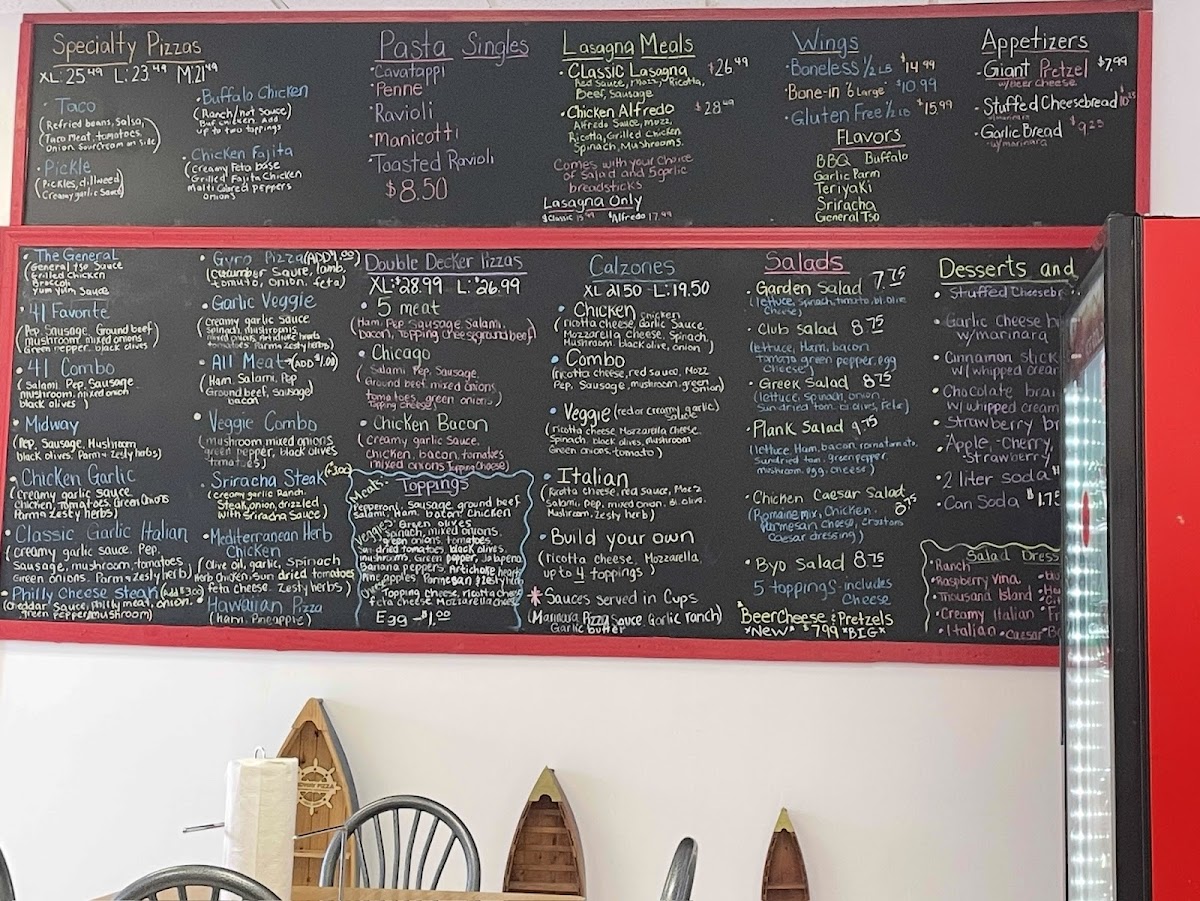 Specialty Pizzas
XL: 25.49 L: 23.49 M: 21.49
· Taco
(Refried beans, Salsa,
Taco Meat, tomatoes,
Onion. SourCream on side)
· Pickle
(Pickles, dillweed
Creamy garlic Sauce)
· Buffalo Chicken
(Ranch/hot Sauce)
Buf chicken. Add
up to two toppings
Chicken Fajita
(Creamy Feta base
Grilled Fajita Chicken
Multi Colored peppers
onions
Pasta Singles
· Cavatappi
· Penne
· Ravioli
· Manicotti
· Toasted Ravioli
$8.50
Lasagna Meals
· Classic Lasagna $26.49
Red Sauce, Mozz, Ricotta,
Beef, Sausage
· Chicken Alfredo $28.49
Alfredo Sauce, Mozz,
Ricotta, Grilled Chicken
Spinach, Mushrooms.
Comes with your Choice
of Salad and 5 garlic
breadsticks
Lasagna Only
$ Classic $Alfredo 17.99
Wings
· Boneless 1/2 LB $14.99
· Bone-in 6 Large $10.99
· Gluten Free 1/2 LB $15.99
Flavors
BBQ Buffalo
Garlic Parm
Teriyaki
Sriracha
General Tso
Appetizers
· Giant Pretzel $7.99
w/Beer Cheese
· Stuffed Cheesebread
w/marinara
· Garlic Bread
w/marinara
· The General
(General tso Sauce
Grilled Chicken
Broccoli
Yum Yum Sauce
· 41 Favorite
(Pep, Sausage, Ground beef
mushroom mixed onions
Green Pepper, black olives)
· 41 Combo
(Salami, Pep, Sausage
mushroom, mixed onion
black olives)
· Midway
(Pep, Sausage, Mushroom
black olives, Parm & Zesty herbs)
· Chicken Garlic
(Creamy garlic sauce
Chicken, tomatoes, Green onions
Parm & Zesty herbs)
· Classic Garlic Italian
(creamy garlic sauce, Pep,
Sausage, mushroom, tomatoes
Green onions. Parm & Zesty herb)
· Philly Cheese Steak (Add $3.00)
(Cheddar Sauce, Philly meat, onion,
green Pepper, mushroom)
· Gyro Pizza (ADD
(Cucumber Sauce, lamb,
tomato, onion, feta)
· Garlic Veggie
(creamy garlic Sauce
Spinach, mushrooms
mixed onions, Artichoke hearts
tomatoes, Parm & Zesty herbs)
· All Meat (ADD $1.00)
(Ham, Salami, Pep
Ground beef, Sausage
bacon
· Veggie Combo
(mushroom mixed onions
green pepper, black olives
tomatoes)
· Sriracha Steak (+3.00)
(Creamy garlic Ranch,
Steak, onion, drizzled
with Sriracha Sauce)
· Mediterranean Herb
Chicken
(Olive oil, garlic, Spinach
Herb chicken, Sun dried tomatoes
feta cheese, Zesty herbs)
· Hawaiian Pizza
(ham, Pineapple)
Double Decker Pizzas
XL: $28.99 L: $26.99
· 5 meat
(Ham, Pep, Sausage, Salami,
bacon, Topping cheese, ground beef)
· Chicago
(Salami, Pep, Sausage,
Ground beef, mixed onions,
tomatoes, green onions,
topping cheese)
· Chicken Bacon
(creamy garlic sauce,
chicken, bacon, tomatoes,
mixed onions Topping Cheese)
Toppings
Meats:
Pepperoni, Sausage, ground beef
Salami, Ham, bacon, Chicken
Veggies: Green olives
Spinach, mixed onions,
green onions, tomatoes,
Sun dried tomatoes, black olives,
mushrooms, Green pepper, Jalapeno
Banana peppers, Artichoke hearts
Pineapples, Parmesan & Zesty herb
Topping cheese, ricotta cheese
feta cheese, Mozzarella cheese
Egg - $1.00
Calzones
XL 21.50 L: 19.50
· Chicken chicken
(ricotta cheese, garlic Sauce
Mozzarella cheese, Spinach,
Mushroom, black olive, onion)
· Combo
(ricotta cheese, red sauce, Mozz
Pep, Sausage, mushroom, green
onion)
· Veggie (red or creamy garlic)
Sauce
(ricotta cheese Mozzarella cheese,
Spinach, black olives, mushroom
Green onions, tomato)
· Italian
(Ricotta cheese, red sauce, Mozz
Salami, Pep, mixed onion, Bl. olive
Mushroom, Zesty herb)
· Build your own
(ricotta cheese, Mozzarella,
up to 4 toppings)
* Sauces served in Cups
(Marinara Pizza Sauce Garlic ranch)
Garlic butter
Salads
· Garden Salad 7.75
(lettuce, Spinach, tomato, bl. olive
cheese)
· Club Salad 8.75
(lettuce, Ham, bacon
tomato green pepper, egg
cheese)
· Greek Salad 8.75
(lettuce, Spinach, onion
Sun dried tom, bl olives, Feta)
· Plank Salad 9.75
(lettuce, Ham, bacon,
Sundried tom, green pepper,
mushroom, egg, cheese)
· Chicken Caesar Salad 8.75
(Romaine mix, Chicken,
Parmesan Cheese, Croutons
Caesar dressing)
· Byo Salad 8.75
5 toppings - includes
Cheese
Beer Cheese & Pretzels
*New* $7.99 *BIG*
Desserts and
· Stuffed Cheeseb
· Garlic Cheese b
w/marinara
· Cinnamon Stick
w/whipped crea
· Chocolate brai
w/whipped cream
· Strawberry br
· Apple - Cherry,
Strawberry
· 2 liter soda $
· Can Soda $1.75
Salad Dress
· Ranch
· Raspberry Vina
· Thousand Island
· Creamy Italian
· Italian · Caesar
PIZZA